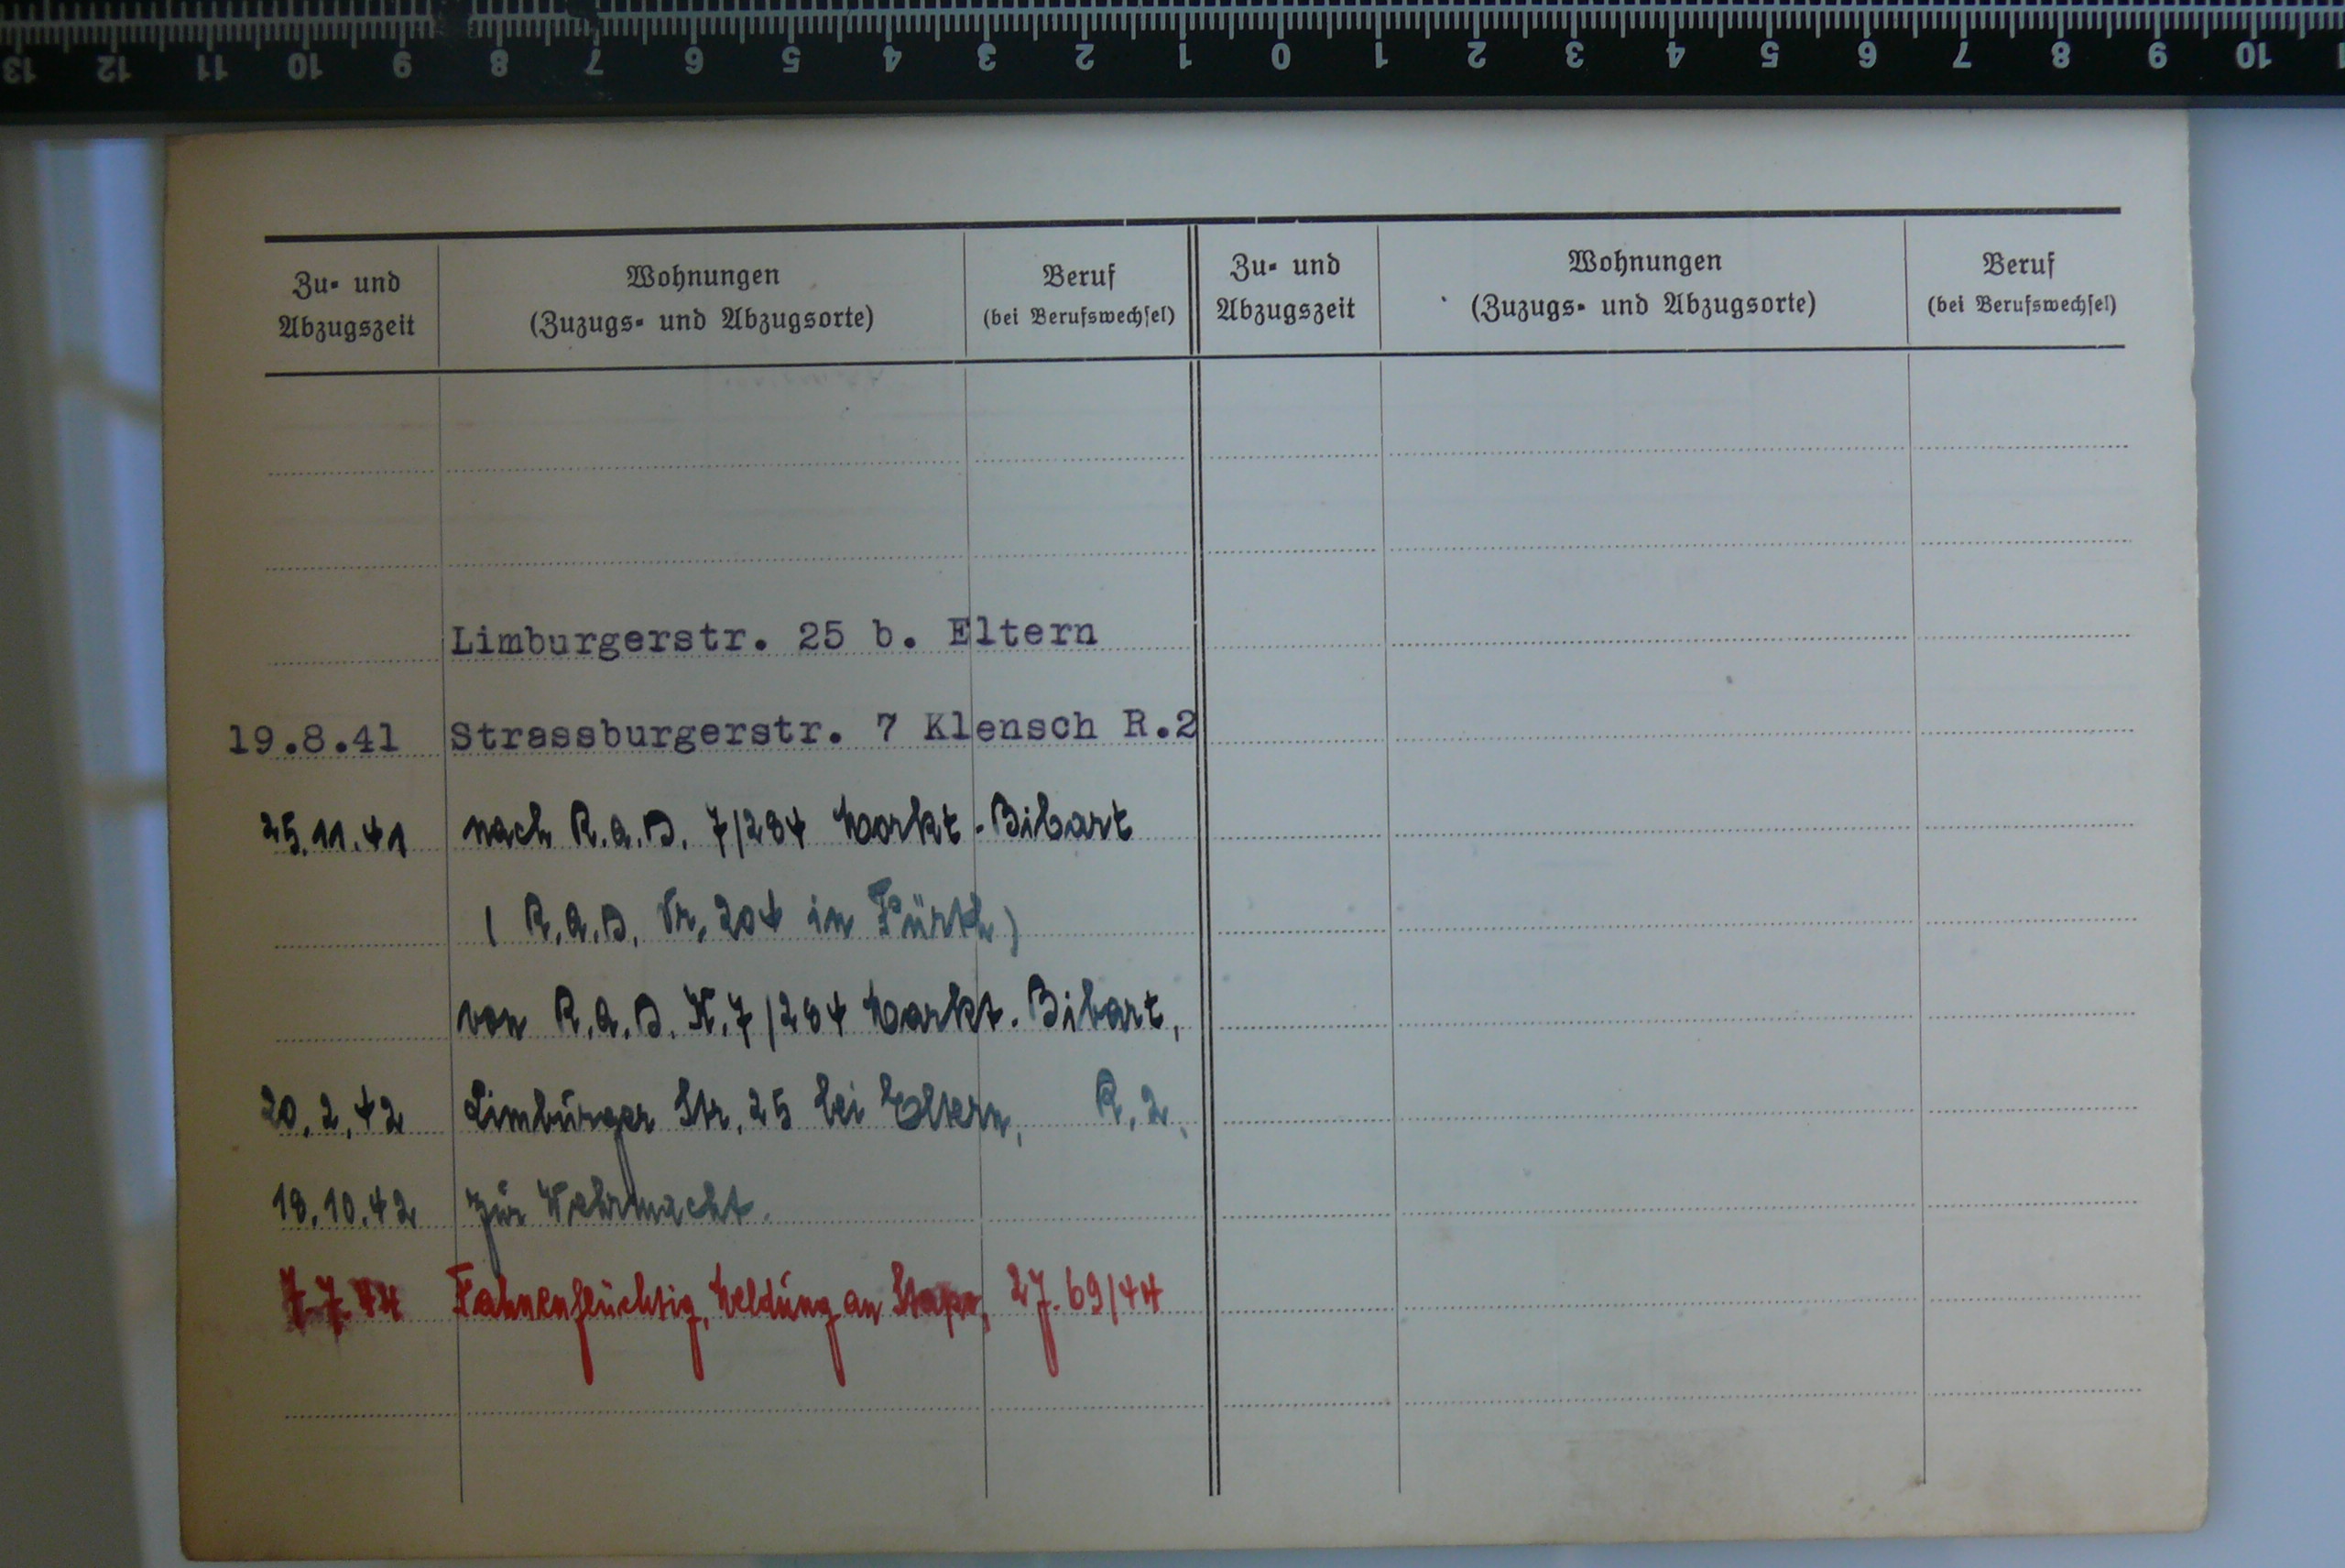 13 12 11 10 9 8 7 6 5 4 3 2 1 0 1 2 3 4 5 6 7 8 9 10
Zu- und Abzugszeit
Wohnungen
(Zuzugs- und Abzugsorte)
Beruf
(bei Berufswechsel)
Zu- und Abzugszeit
Wohnungen
(Zuzugs- und Abzugsorte)
Beruf
(bei Berufswechsel)
Limburgerstr. 25 b. Eltern
19.8.41 Strassburgerstr. 7 Klensch R.2
25.11.41 nach R.A.D. 7/284 Markt-Bibart
( R.A.D. Nr. 204 in Fürth)
von R.A.D. K.7/284 Markt-Bibart,
20.2.42 Limburger Str. 25 bei Eltern, R.2.
18.10.42 zur Wehrmacht.
7.7.44 Fahnenflüchtig, Meldung an Stapo, 69/44